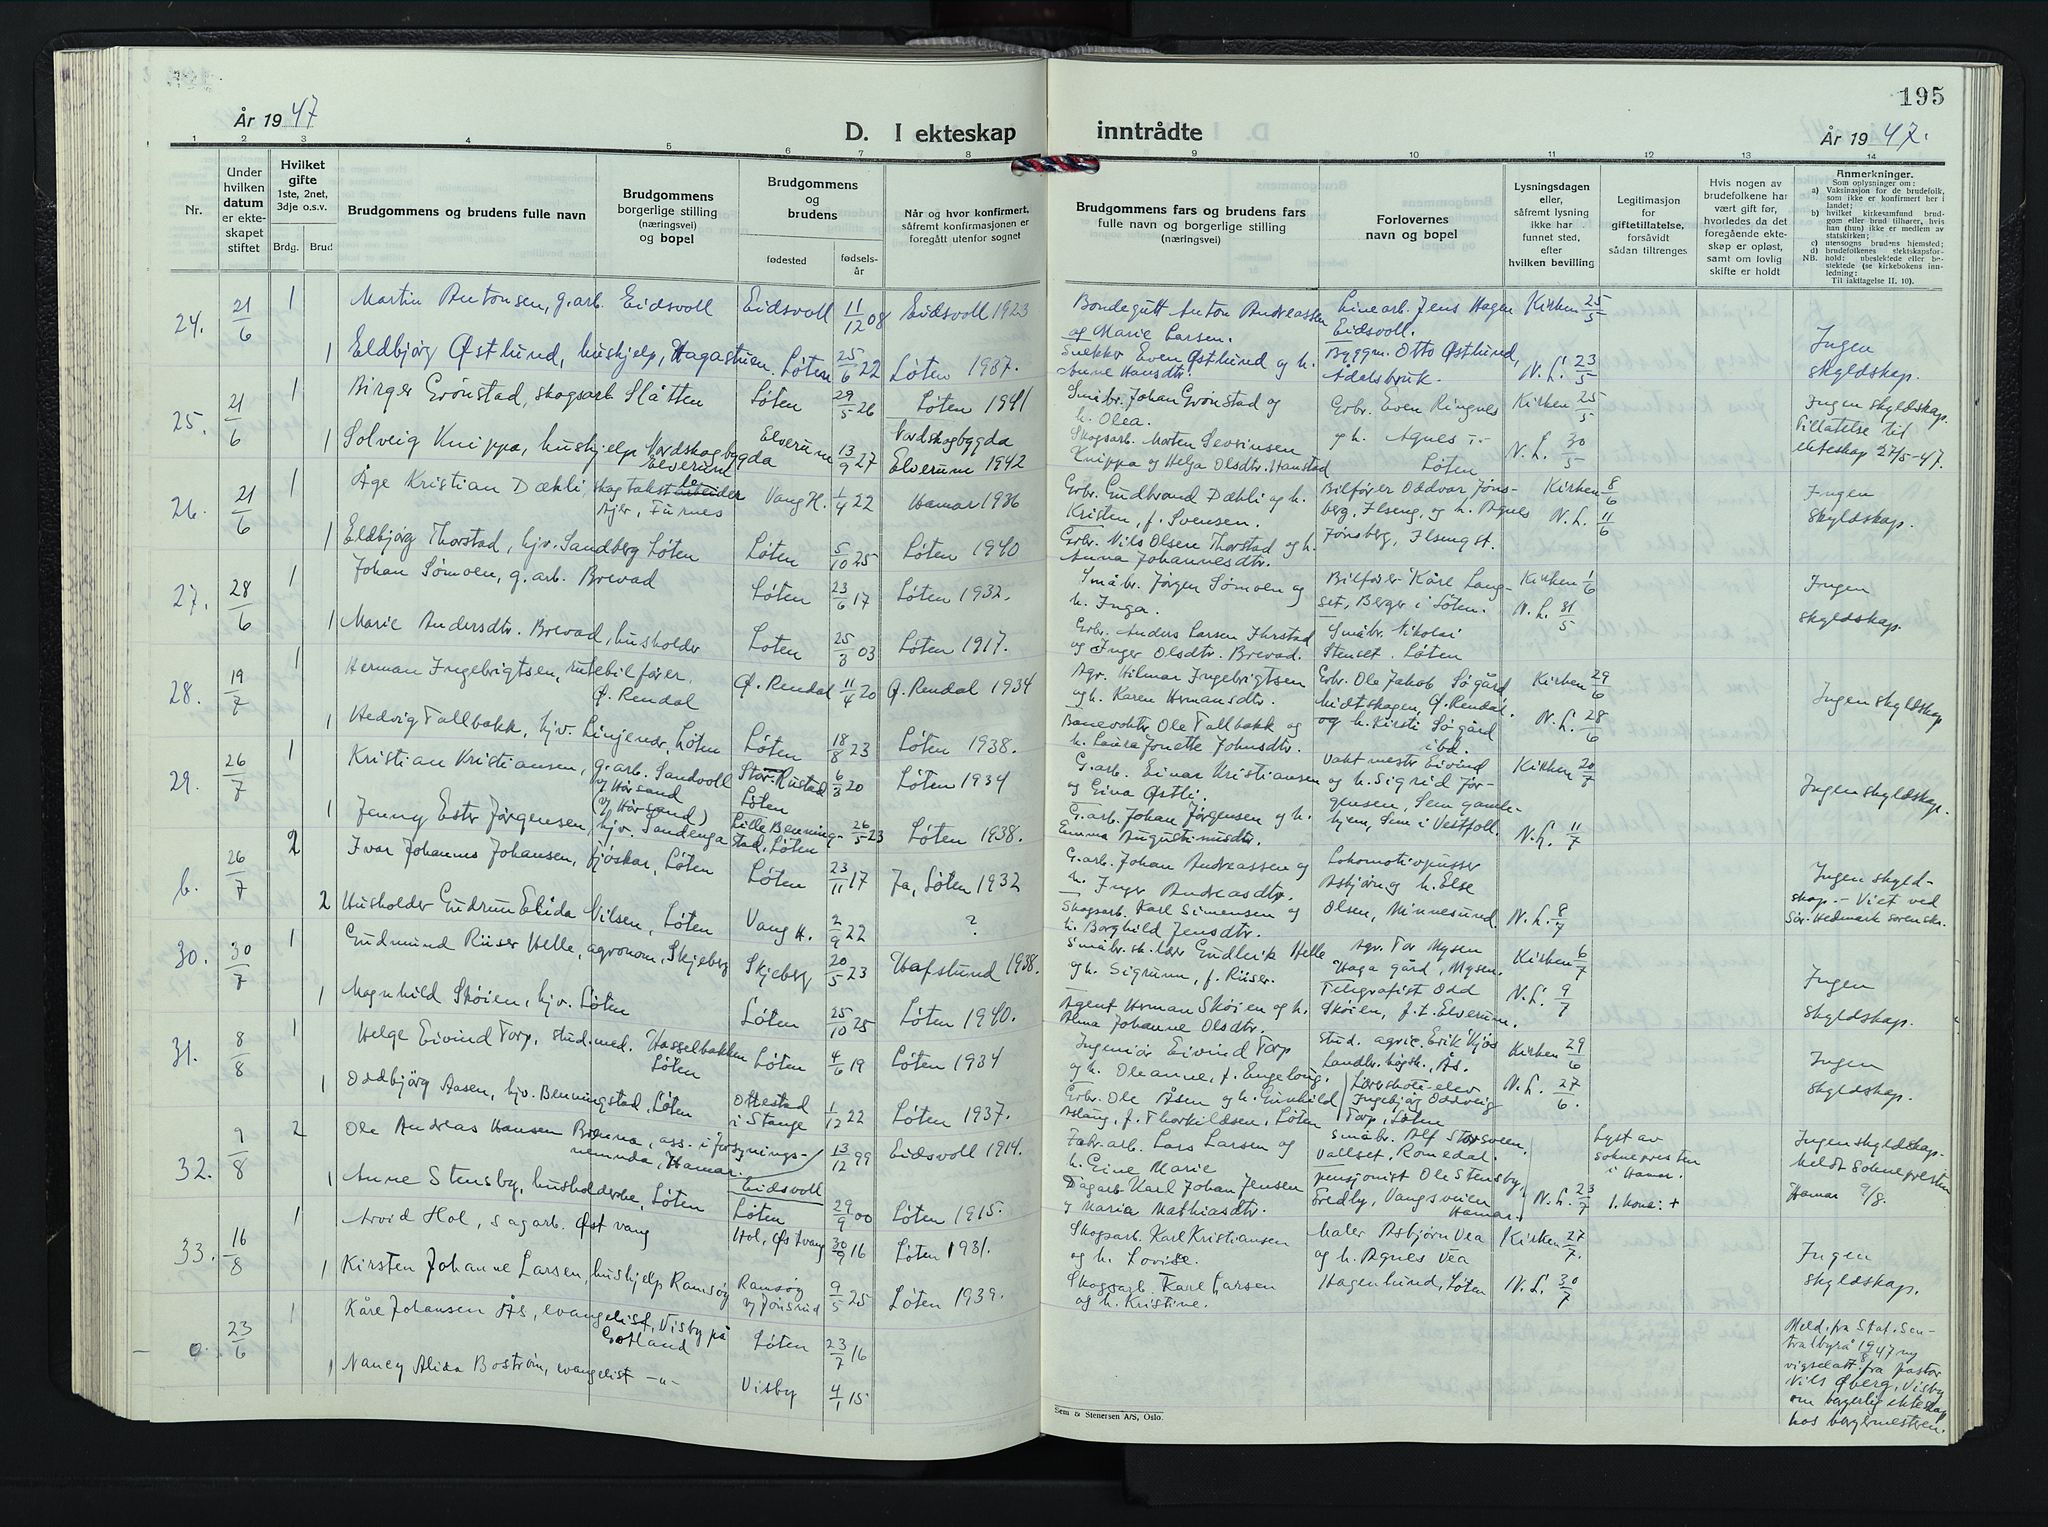 195
År 1947
D. I ekteskap
inntrådte
År 1947.
1 2 3 4 5 6 7 8 9 10 11 12 13 14
Nr.
Under hvilken datum er ekteskapet stiftet
Hvilket gifte 1ste, 2net, 3dje o.s.v.
Brdg. Brud
Brudgommens og brudens fulle navn
Brudgommens borgerlige stilling (næringsvei) og bopel
Brudgommens og brudens
fødested
fødselsår
Når og hvor konfirmert, såfremt konfirmasjonen er foregått utenfor sognet
Brudgommens fars og brudens fars fulle navn og borgerlige stilling (næringsvei)
Forlovernes navn og bopel
Lysningsdagen eller, såfremt lysning ikke har funnet sted, efter hvilken bevilling
Legitimasjon for giftetillatelse, forsåvidt sådan tiltrenges
Hvis nogen av brudefolkene har vært gift før, hvorledes da det foregående ekteskap er opløst, samt om lovlig skifte er holdt
Anmerkninger.
Som oplysninger om:
a) Vaksinasjon for de brudefolk, som ikke er konfirmert her i landet;
b) hvilket kirkesamfund brudgom eller brud tilhører, hvis han (hun) ikke er medlem av statskirken;
c) utensogns brudens hjemsted;
d) brudefolkenes slektskapsforhold: ubeslektede eller beslektede (se kirkebokens innledning:
NB.
Til iakttagelse II. 10).
24. 21/6 1 Martin Antonsen, g.arb. Eidsvoll Eidsvoll 11/12 08 Eidsvoll 1923 Bondegutt Anton Andreassen og Marie Larsen. Linearb. Jens Hagen Eidsvoll. Kirken 25/5
1 Eldbjørg Østlund, hushjelp, Hagastuen. Løten 25/6 22 Løten 1937. Snekker Even Østlund og h. Anne Hansdtr. Byggm. Otto Østlund, Ådalsbruk. N.L. 23/5 Ingen skyldskap.
25. 21/6 1 Birger Grønstad, skogsarb. Slåtten Løten 29/5 26 Løten 1941 Småbr. Johan Grønstad og h. Olea. Grbr. Even Ringnes og h. Agnes Løten Kirken 25/5 Ingen skyldskap. Tillatelse til ekteskap 27/5-47.
1 Solveig Knippa, hushjelp Nordskogbygda Elverum Elverum 13/9 27 Nordskogbygda Elverum 1942 Skogsarb. Morten Sevrinsen Knippa og Helga Olsdtr. Hanstad N.L. 30/5
26. 21/6 1 Åge Kristian Dæhli, skogtakst Ajer, Furnes Vang H. 1/4 22 Hamar 1936 Grbr. Gudbrand Dæhli og h. Kristen, f. Svensen. Bilfører Oddvar Jønsberg, Ilseng, og h. Agnes Jønsberg, Ilseng st. Kirken 8/6 N.L. 11/6 Ingen skyldskap.
1 Eldbjørg Thorstad, hjv. Sandberg Løten Løten 5/10 25 Løten 1940 Grbr. Nils Olsen Thorstad og h. Anna Johannesdtr.
27. 28/6 1 Johan Sømoen, g.arb. Brevad Løten 23/6 17 Løten 1932. Småbr. Jørgen Sømoen og h. Inga. Bilfører Kåre Langset, Berger i Løten. Kirken 1/6 N.L. 31/5 Ingen skyldskap.
1 Marie Andersdtr. Brevad, husholder Løten 25/3 03 Løten 1917. Grbr. Anders Larsen og Inger Olsdtr. Brevad. Småbr. Nikolai Stenset. Løten
28. 19/7 1 Herman Ingebrigtsen, rutebilfører. Ø. Rendal Ø. Rendal 11/4 20 Ø. Rendal 1934 Agr. Hilmar Ingebrigtsen og h. Karen Hermansdtr. Grbr. Ole Jakob Søgård Midtskogen, Ø. Rendal. og h. Kirsti Søgård ibd. Kirken 29/6 N.L. 28/6 Ingen skyldskap
1 Hedvig Tallbakk, hjv. Linjevær, Løten Løten 18/8 23 Løten 1938. Banevokter Ole Tallbakk og h. Laura Jonette Johnsdtr.
29. 26/7 1 Kristian Kristiansen, g.arb. Sandvoll v/ Hørsand Stor-Rustad Løten 6/3 20 Løten 1934 G.arb. Einar Kristiansen og Gina Østli. Vaktmester Eivind og h. Sigrid Jørgensen, Sem gamlehjem, Sem i Vestfoll. Kirken 20/7 Ingen skyldskap.
1 Jenny Ester Jørgensen, hjv. Sandenga v/ Hørsand) Lille Benningstad, Løten 26/5 23 Løten 1938. G.arb. Johan Jørgensen og h. Emma Augustinusdtr. N.L. 11/7
b. 26/7 2 Ivar Johannes Johansen, fjøskar, Løten Løten 23/11 17 Ja, Løten 1932 G.arb. Johan Andreassen og h. Inger Andreasdtr. Lokomotivpusser Asbjørn og h. Else Olsen, Minnesund. Ingen skyldskap. - Viet ved Sør-Hedmark sorenskr.
2 Husholder Gudrun Elida Nilsen, Løten Vang H. 2/9 22 ? Skogsarb. Karl Simensen og h. Borghild Jensdtr. N.L. 8/7
30. 30/7 1 Gudmund Riiser Helle, agronom, Skjeberg Skjeberg 20/5 23 Hafslund 1938. Småbr. sk. lærer Gudleik Helle og h. Sigrunn, f. Riiser. Agr. Tor Mysen Haga gård, Mysen. Kirken 6/7 Ingen skyldskap.
1 Magnhild Skøien, hjv. Løten Løten 25/10 25 Løten 1940. Agent Herman Skøien og h. Alma Johanne Olsdtr. Telegrafist Odd Skøien, f.t. Elverum. N.L. 9/7
31. 8/8 1 Helge Eivind Torp, stud.med. Hasselbakken Løten Løten 4/6 19 Løten 1934 Ingeniør Eivind Torp og h. Oleanne, f. Engelong. Stud. agric. Erik Kjos Landbr. høgsk., Ås. Kirken 29/6 Ingen skyldskap.
1 Oddbjørg Aasen, hjv. Benningstad, Løten Ottestad i Stange 1/12 22 Løten 1937. Grbr. Ole Åsen og h. Gunhild Aslaug, f. Thorkildsen, Løten Lærerskole-elev Ingebjørg Oddveig Torp, Løten N.L. 27/6.
32. 9/8 2 Ole Andreas Hansen, ass. i forsyningsnemnda, Hamar. Eidsvoll 13/12 99 Eidsvoll 1914. Fabr.arb. Lars Larsen og h. Eine Marie Småbr. Alf Storsveen, Vallset, Romedal. Lyst av soknepresten i Hamar. Ingen skyldskap. Meldt soknepresten Hamar 9/8.
1 Anne Stensby, husholderske, Løten Løten 29/9 00 Løten 1915. Dagarb. Karl Johan Jensen og Maria Mathiasdtr. Pensjonist Ole Stensby, Fredby, Vangsveien Hamar. N.L. 23/7 1. kona: +
33. 16/8 1 Arvid Hol, sagarb. Østvang Hol, Østvang 30/9 16 Løten 1931. Skogsarb. Karl Kristiansen og h. Lovise. Maler Asbjørn Vea og h. Agnes Vea Kirken 27/7. Ingen skyldskap.
1 Kirsten Johanne Larsen, hushjelp Ramsøy Ramsøy v/ Jønsrud 9/5 25 Løten 1939. Skogsarb. Karl Larsen og h. Kristine. Hagenlund, Løten N.L. 30/7
0. 23/6 1 Kåre Johansen Ås, evangelist, Visby på Gotland Løten 23/7 16
1 Nancy Alida Boström, evangelist -"- Visby 4/1 15
Meld. fra Stat. Sentralbyrå 19/8 47 og vigselatt. fra pastor Nils Øberg, Visby om borgerlig ekteskap hos borgermesteren.
Sem & Stenersen A/S, Oslo.